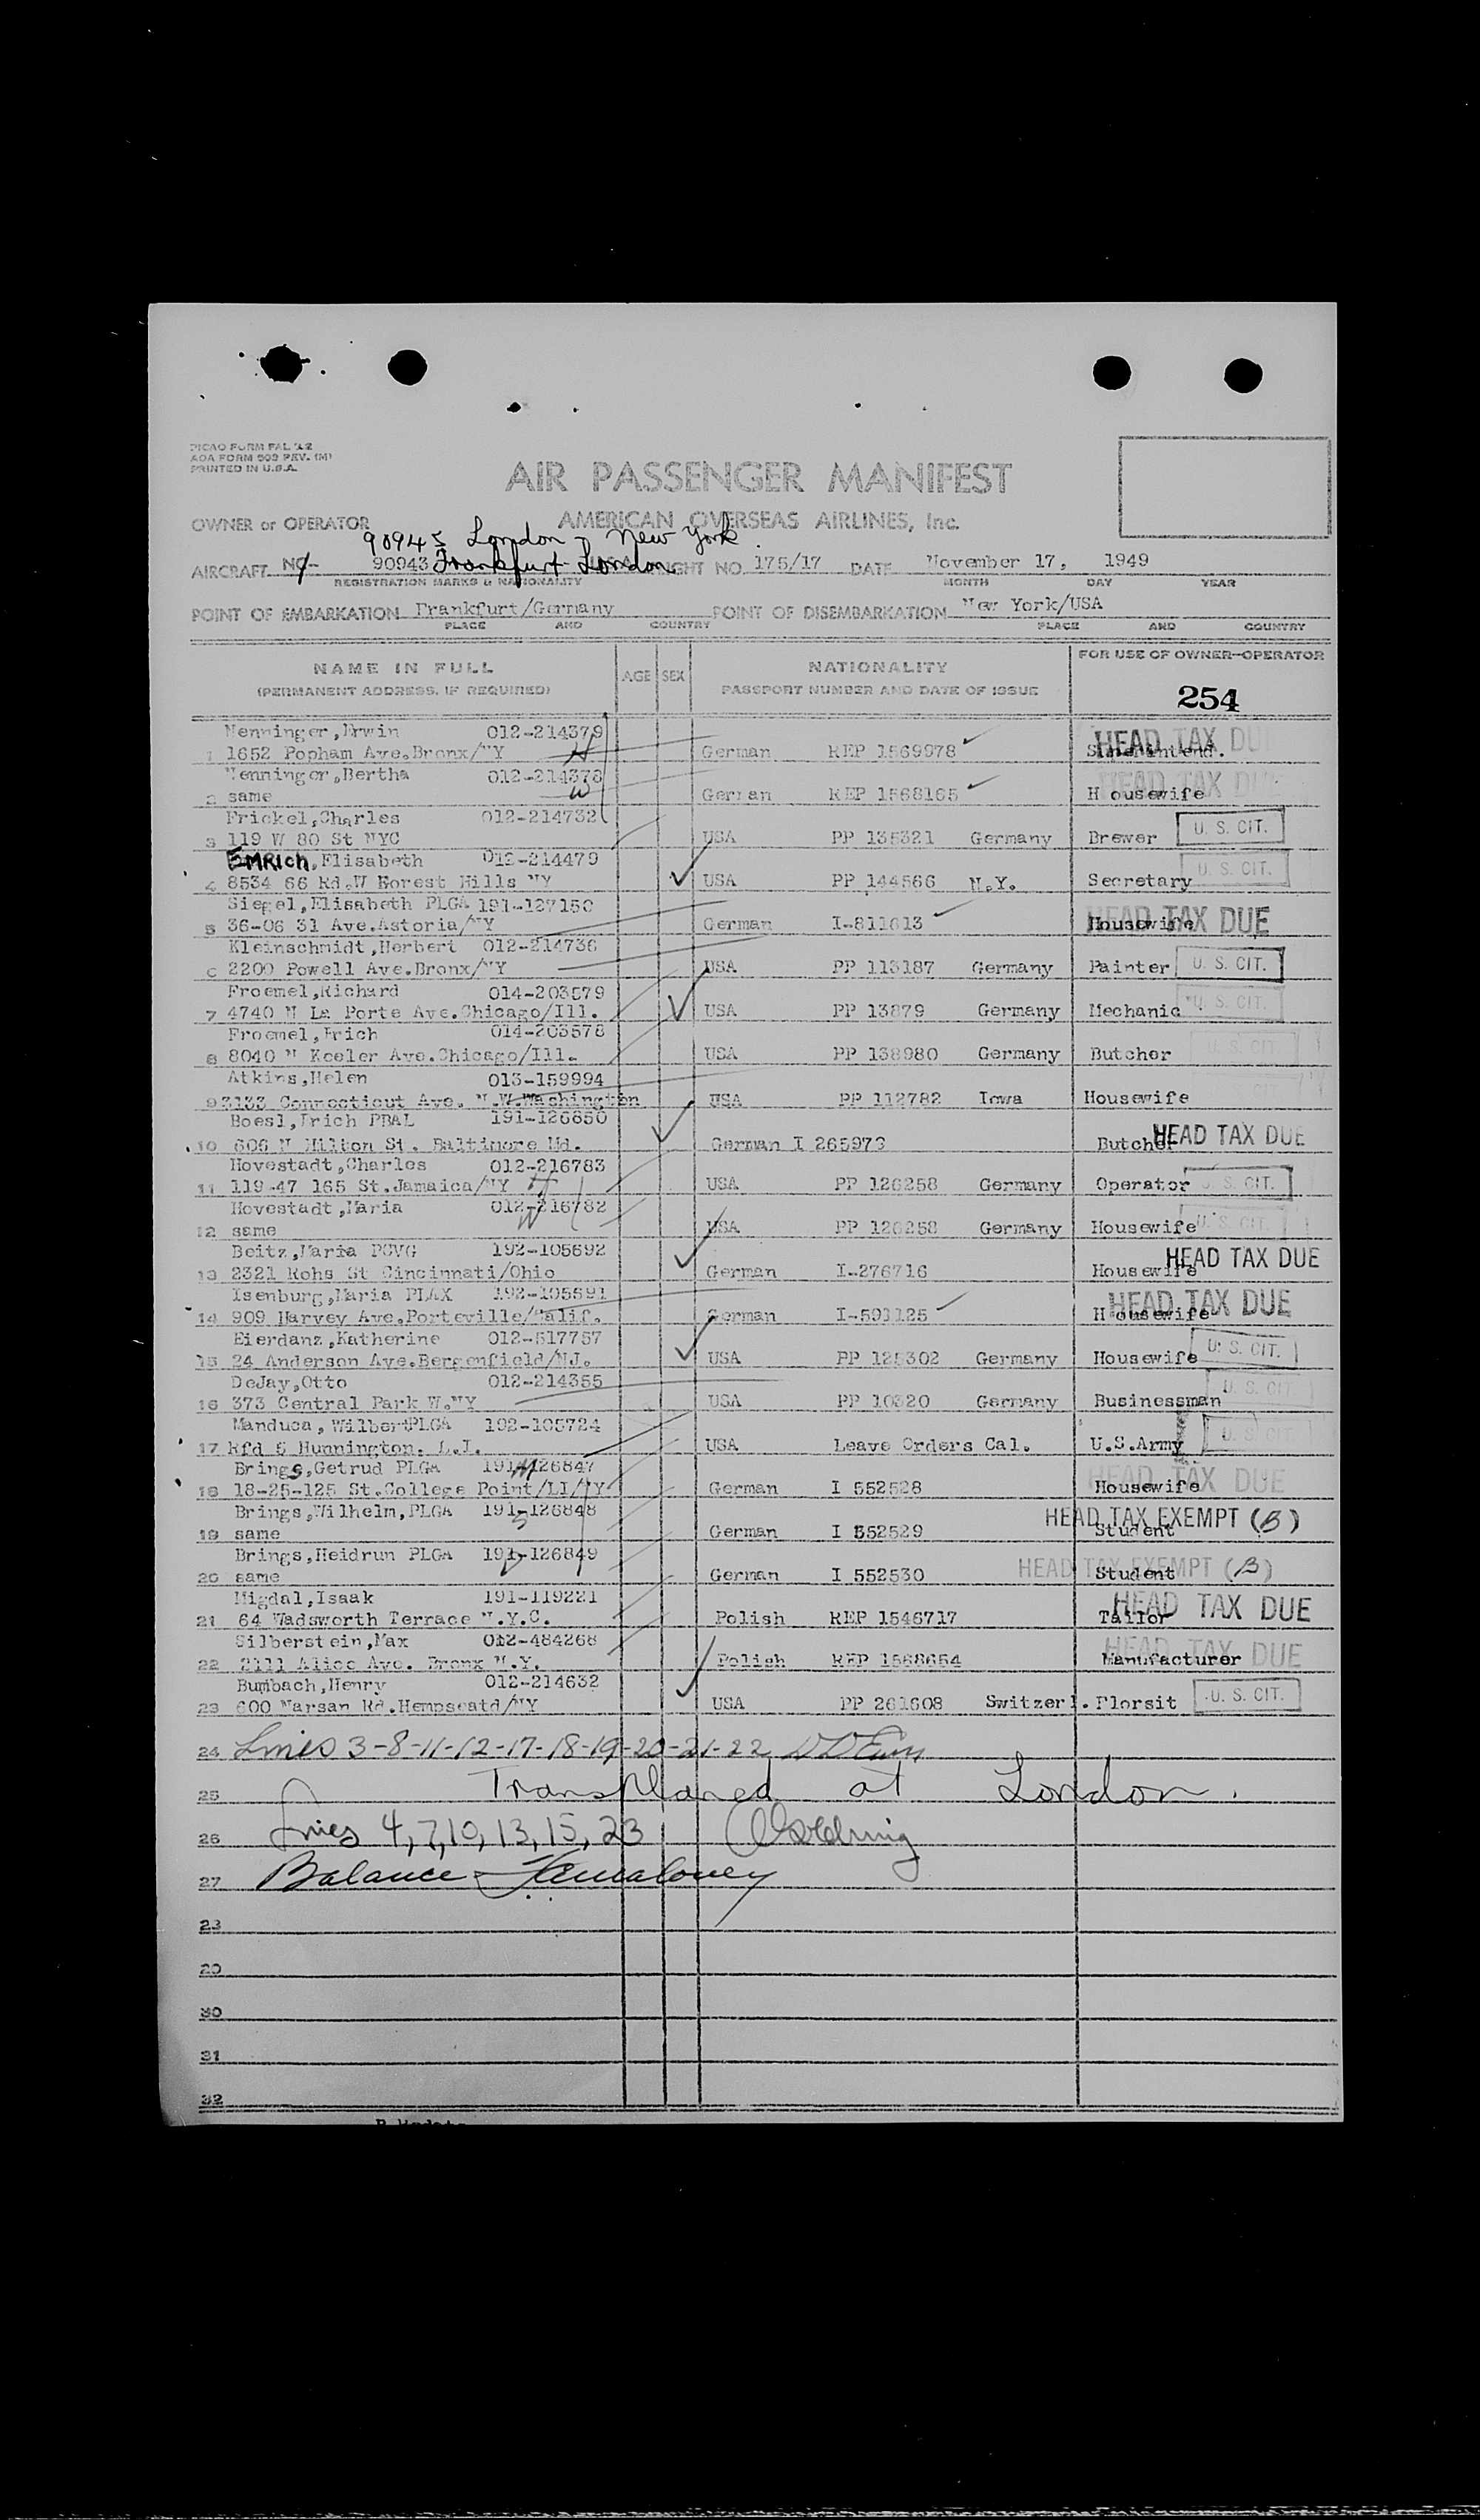 ICAO FORM FAL
AOA FORM 503 REV. (M)
PRINTED IN U.S.A.
AIR PASSENGER MANIFEST
OWNER or OPERATOR AMERICAN OVERSEAS AIRLINES, Inc.
90945 London - New York
AIRCRAFT NC- 90943 Frankfurt-London FLIGHT NO. 175/17 DATE November 17, 1949
REGISTRATION MARKS & NATIONALITY MONTH DAY YEAR
POINT OF EMBARKATION Frankfurt/Germany POINT OF DISEMBARKATION New York/USA
PLACE AND COUNTRY PLACE AND COUNTRY
NAME IN FULL AGE SEX NATIONALITY FOR USE OF OWNER-OPERATOR
(PERMANENT ADDRESS, IF REQUIRED) PASSPORT NUMBER AND DATE OF ISSUE 254
Nenninger,Erwin 012-214379 HEAD TAX DUE
1 1652 Popham Ave.Bronx/NY H German REP 1569978 Superintend.
Nenninger,Bertha 012-214378 HEAD TAX DUE
2 same W German REP 1568165 H ousewife
Frickel,Charles 012-214732 U. S. CIT.
3 119 W 80 St NYC USA PP 135321 Germany Brewer
EMRICH,Elisabeth 012-214479 U. S. CIT.
4 8534 66 Rd.W Forest Hills NY USA PP 144566 N.Y. Secretary
Siegel,Elisabeth PLGA 191-127150 HEAD TAX DUE
5 36-06 31 Ave.Astoria/NY German I-811613 Housewife
Kleinschmidt,Herbert 012-214736
6 2200 Powell Ave.Bronx/NY USA PP 113187 Germany Painter U. S. CIT.
Froemel,Richard 014-203579 U. S. CIT.
7 4740 N La Porte Ave.Chicago/Ill. USA PP 13879 Germany Mechanic
Froemel,Erich 014-203578 U. S. CIT.
8 8040 N Keeler Ave.Chicago/Ill. USA PP 138980 Germany Butcher
Atkins,Helen 013-159994 CIT.
9 3133 Connecticut Ave. N.W.Washington USA PP 112782 Iowa Housewife
Boesl,Erich PBAL 191-126850 HEAD TAX DUE
10 606 N Milton St. Baltimore Md. German I 265973 Butcher
Hovestadt,Charles 012-216783
11 119-47 165 St.Jamaica/NY H USA PP 126258 Germany Operator U. S. CIT.
Hovestadt,Maria 012-216782 U. S. CIT.
12 same W USA PP 126258 Germany Housewife
Beitz,Maria PCVG 192-105692 HEAD TAX DUE
13 2321 Rohs St Cincinnati/Ohio German I-276716 Housewife
Isenburg,Maria PLAX 192-105591 HEAD TAX DUE
14 909 Harvey Ave.Porteville/Calif. German I-591125 H ousewife
Eierdanz,Katherine 012-517757 U. S. CIT.
15 24 Anderson Ave.Bergenfield/NJ. USA PP 125302 Germany Housewife
DeJay,Otto 012-214355 U. S. CIT.
16 373 Central Park W.NY USA PP 10320 Germany Businessman
Manduca, WilbertPLGA 192-105724 U. S CIT
17 Rfd 5 Hunnington. L.I. USA Leave Orders Cal. U.S.Army
Brings,Getrud PLGA 191-126847 M HEAD TAX DUE
18 18-25-125 St.College Point/LI/NY German I 552528 Housewife
Brings,Wilhelm,PLGA 191-126848 S HEAD TAX EXEMPT (B)
19 same German I 552529 Student
Brings,Heidrun PLGA 191-126849 D HEAD TAX EXEMPT (B)
20 same German I 552530 Student
Migdal,Isaak 191-119221 HEAD TAX DUE
21 64 Wadsworth Terrace N.Y.C. Polish REP 1546717 Tailor
Silberstein,Max 012-484268 HEAD TAX DUE
22 2111 Alice Ave. Bronx N.Y. Polish REP 1568654 Manufacturer
Bumbach,Henry 012-214632
23 600 Warsan Rd.Hempseatd/NY USA PP 261608 Switzerl. Florsit U. S. CIT.
24 Lines 3-8-11-12-17-18-19-20-21-22
25 Transplaned at London.
26 Lines 4,7,10,13,15,23 Goldring
27 Balance
28
29
30
31
32